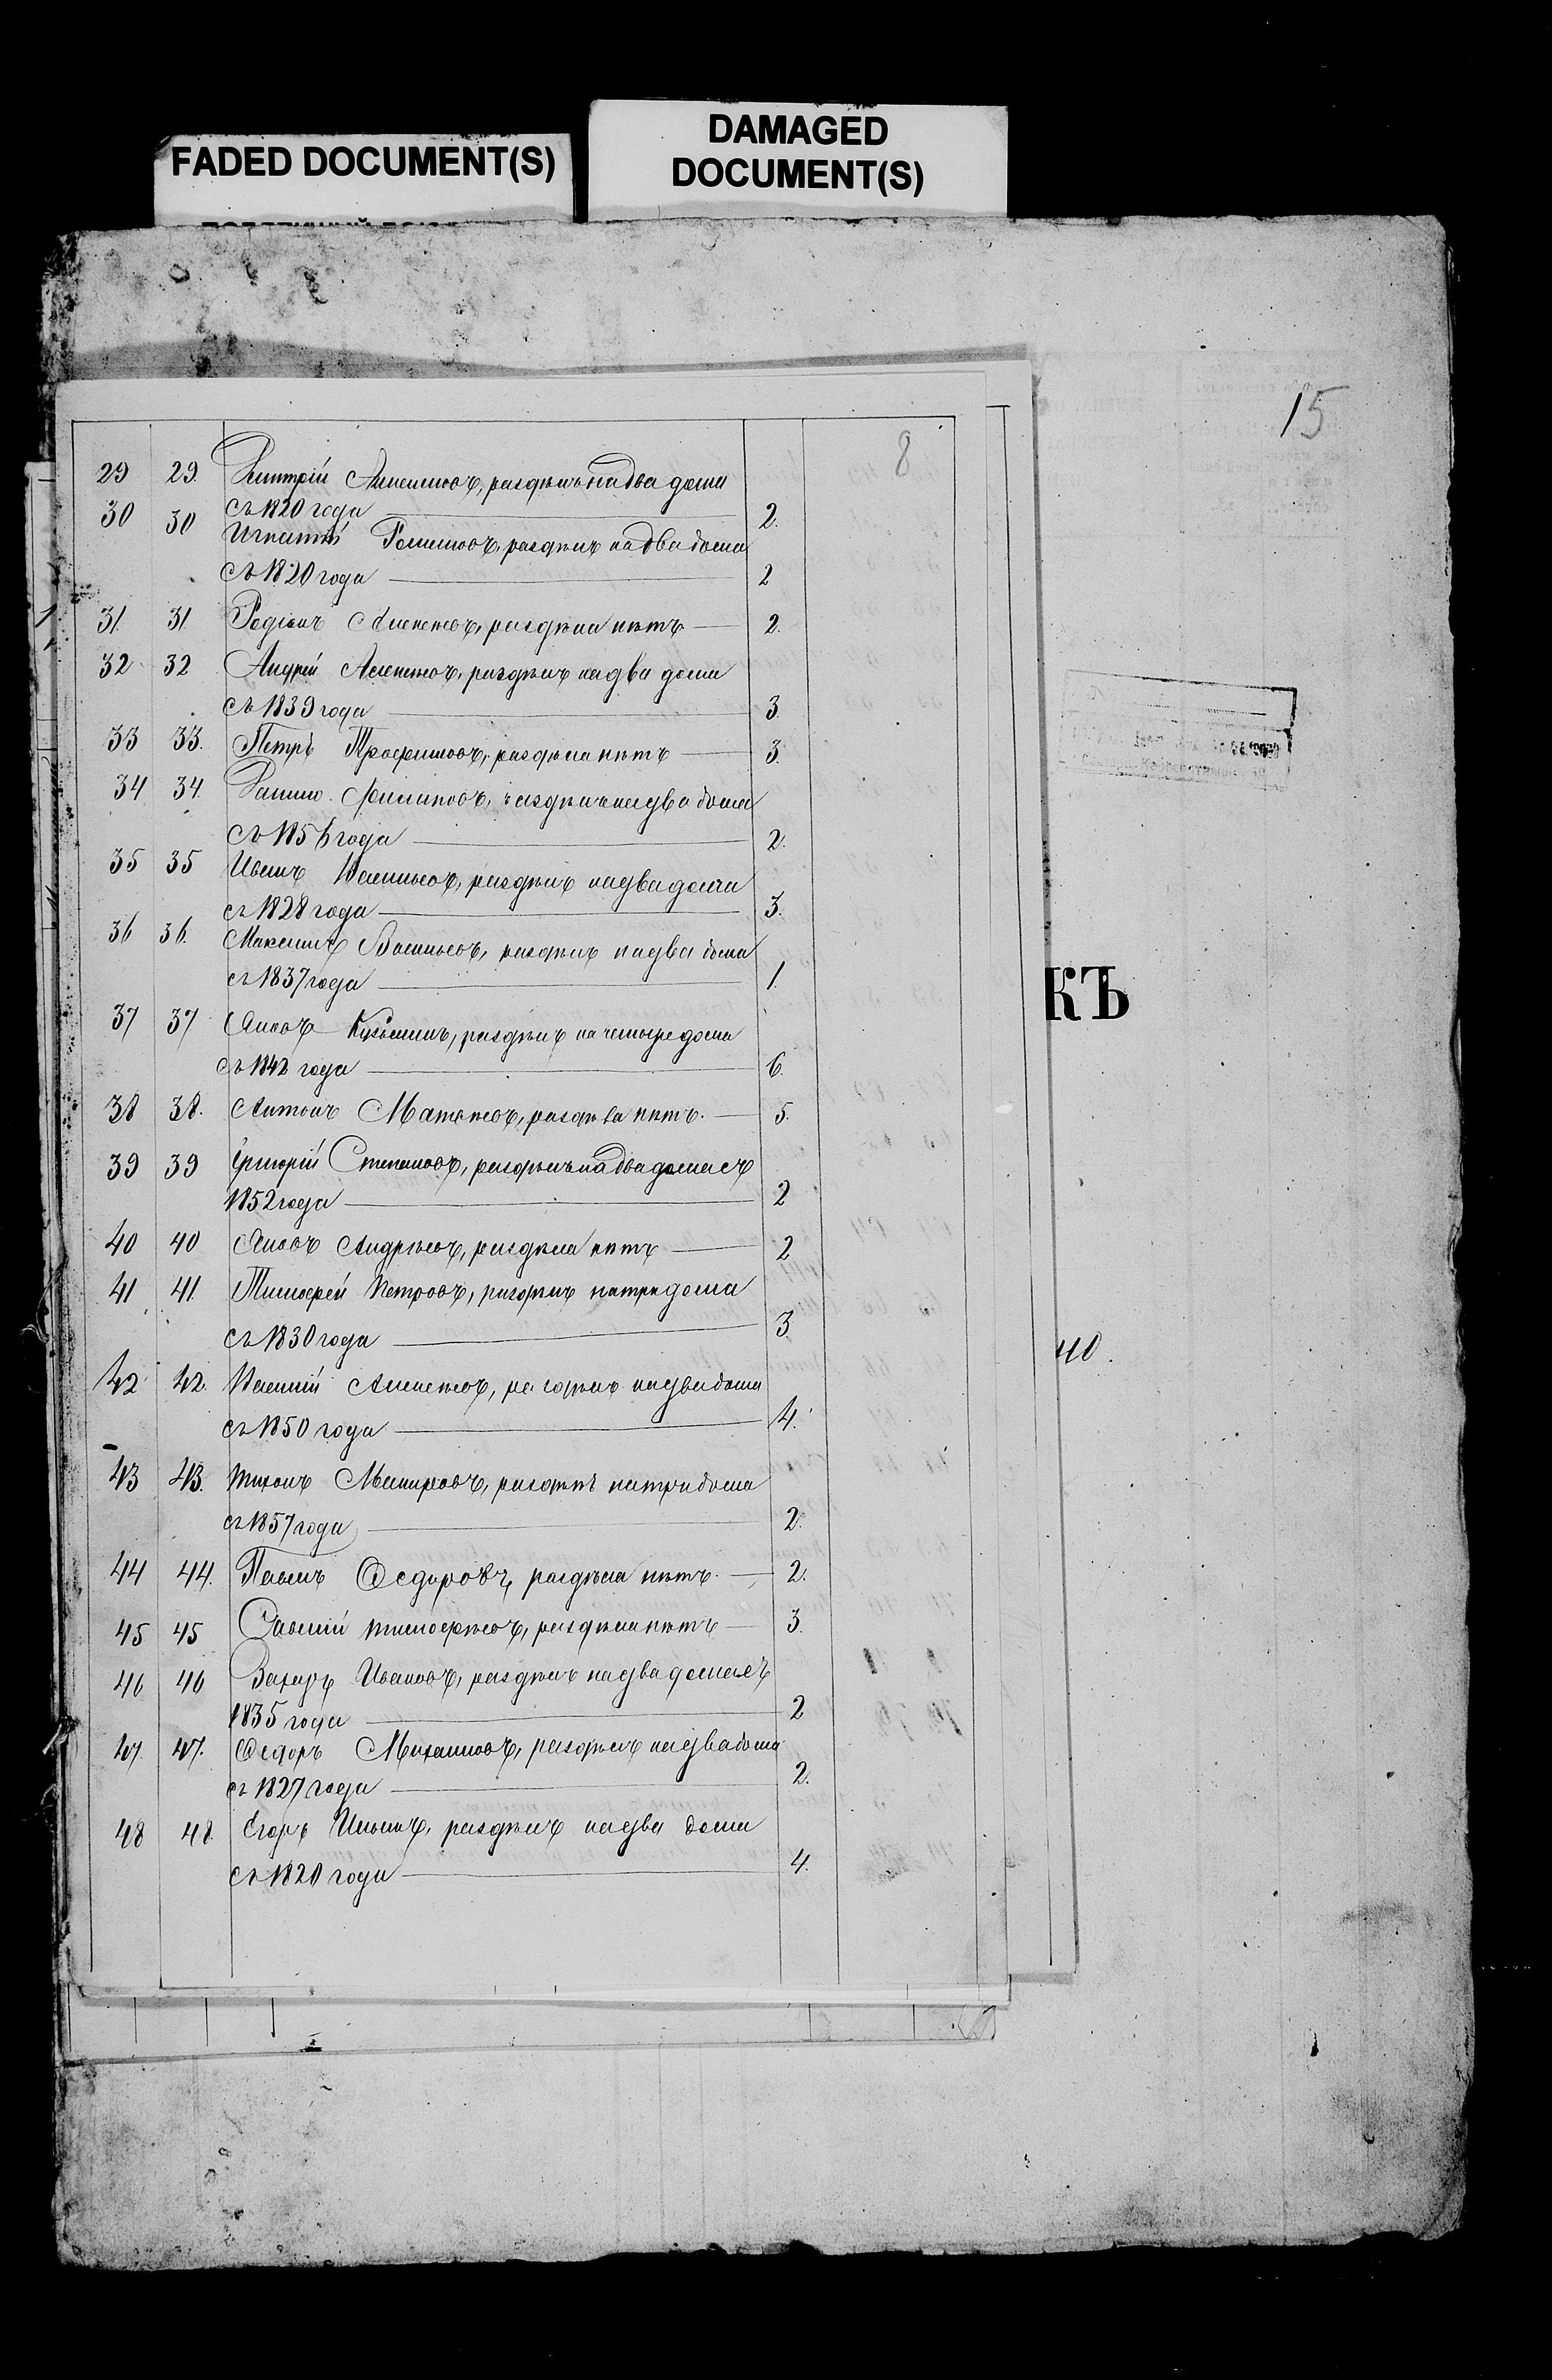 FADED DOCUMENT(S)
DAMAGED
DOCUMENT(S)
15
8
29 29. Дмитрій раздѣлъ на два дома
съ 1820 года 2.
30 30 Игнатій раздѣлъ на два дома
съ 1820 года 2
31. 31. Родіонъ Алексѣевъ, раздѣла нѣтъ 2.
32 32 Андрей Алексѣевъ, раздѣлъ на два дома
съ 1839 года 3.
33 33. Петръ Трофимовъ, раздѣла нѣтъ 3.
34 34. Данило Филиповъ, раздѣлъ на два дома
съ 1856 года 2.
35 35 Иванъ Васильевъ, раздѣлъ на два дома
съ 1828 года 3.
36 36. Максимъ Васильевъ, раздѣлъ на два дома
съ 1837 года 1.
37 37 Яковъ Кузьминъ, раздѣлъ на четыре дома
съ 1842 года 6.
38 38. Антонъ Матвѣевъ, раздѣла нѣтъ. 5.
39 39 Григорій Степановъ, раздѣлъ на два дома съ
1852 года 2
40 40 Яковъ Андрѣевъ, раздѣла нѣтъ 2
41 41. Тимофей Петровъ, раздѣлъ на три дома
съ 1830 года 3
42 42. Василій Алексѣевъ, раздѣлъ на два дома
съ 1850 года 4.
43 43. Тихонъ раздѣлъ на три дома
съ 1857 года 2.
44 44. Павелъ Ѳедоровъ, раздѣла нѣтъ. 2.
45 45 Савелій Тимофѣевъ, раздѣла нѣтъ 3.
46 46 Захаръ Ивановъ, раздѣлъ на два дома съ
1835 года 2
47. 47. Ѳедоръ Михайловъ, раздѣлъ на два дома
съ 1827 года 2.
48 48. Егоръ Ильинъ, раздѣлъ на два дома
съ 1820 года 4.
КЪ
40.